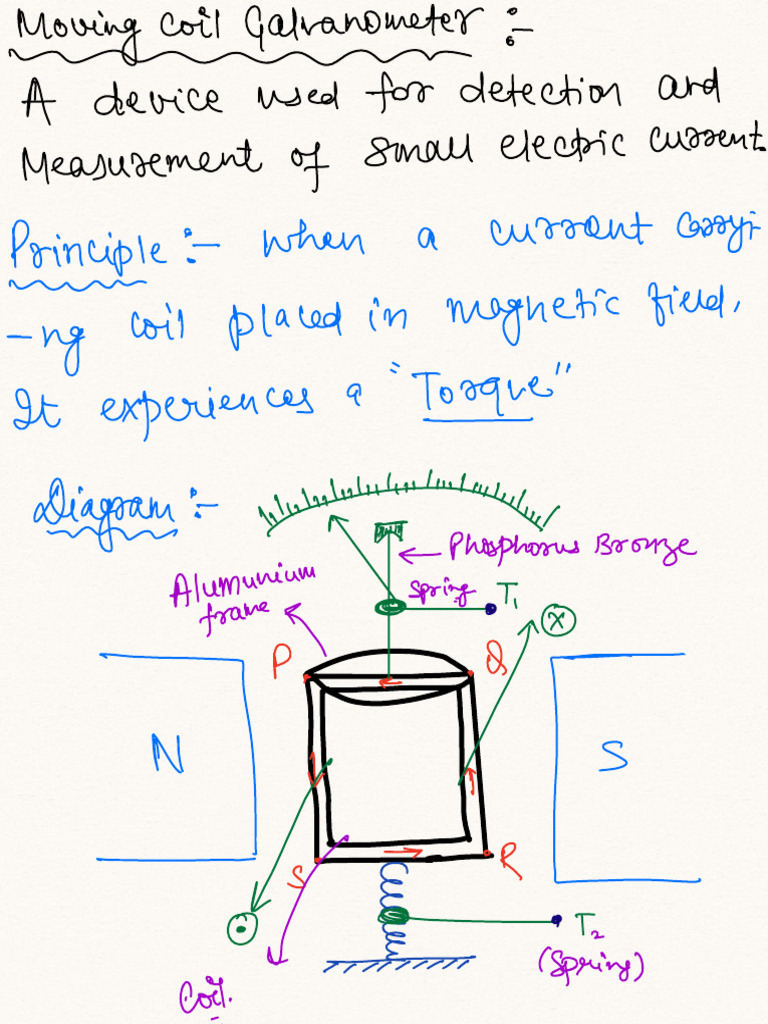 Moving coil Galvanometer :-
A device used for detection and
Measurement of small electric current.
Principle :- when a current carryi
-ng coil placed in magnetic field,
It experiences a "Torque"
Diagram :-
Phosphorus Bronze
Alumunium
frame
Spring
T1
x
P
Q
N
S
S
R
T2
(Spring)
Coil.